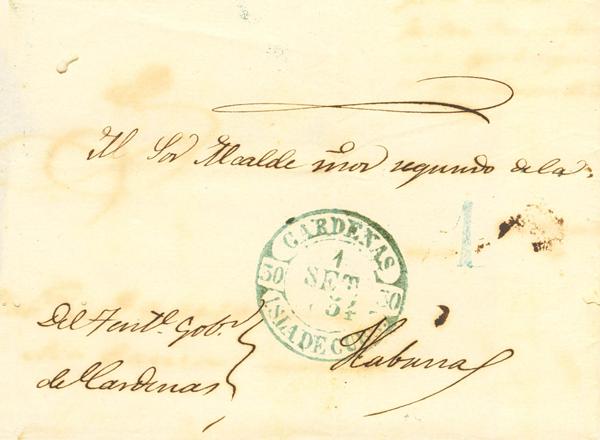 Al Sor Alcalde mor segundo de la
1
CARDENAS
1
SET
54
30 30
ISLA DE CUBA
Del Tente. Gobr.
de Cardenas
Habana